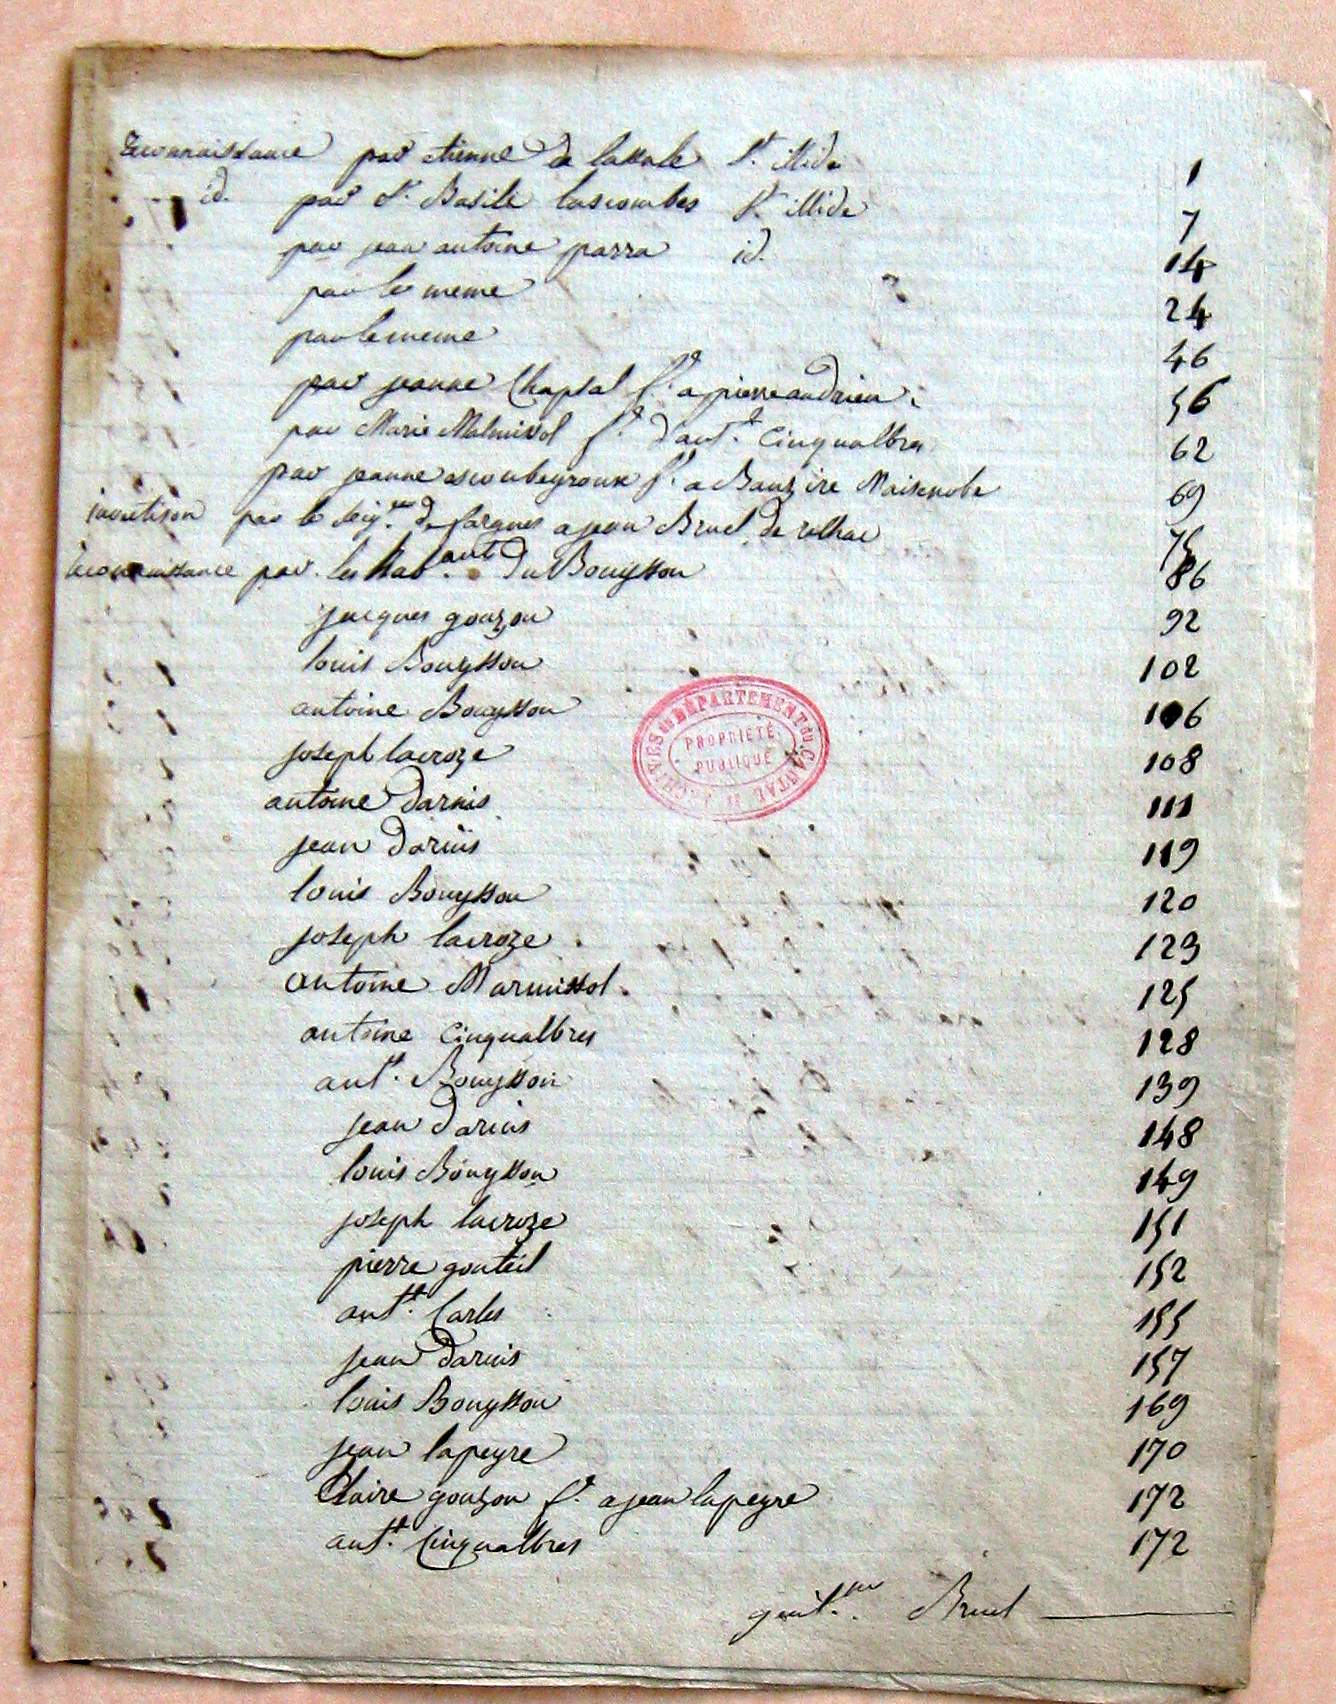 Reconnaissance par etienne de lassale St. illide 1
id. par Sr. Basile lascombes St. illide 7
par jean antoine parra id. 14
par le meme 24
par le meme 46
par jeanne Chaptal fe. a pierre andrieu 56
par Marie Malmissol fe. d'ant.e Cinqualbres 62
par jeanne escoubeyroux fe. a Bauzire Maisonobe 69
par le seig.eur de fargues a jean Bruel de rilhac 75
Reconnaissance par les hab.ant du Bouysson 86
jacques gouzou 92
louis Bouysson 102
antoine Bouysson 106
joseph lacroze 108
antoine Darnis 111
jean Darnis 119
louis Bouysson 120
joseph lacroze 123
antoine Marmissol 125
antoine Cinqualbres 128
ant.e Bouysson 139
jean Darnis 148
louis Bouysson 149
joseph lacroze 151
pierre gouteil 152
ant.e Carles 155
jean Darnis 157
louis Bouysson 169
jean lapeyre 170
Claire gouzou fe. a jean lapeyre 172
ant.e Cinqualbres 172
Bruel
ARCHIVES DU DÉPARTEMENT DU CANTAL
PROPRIÉTÉ
PUBLIQUE